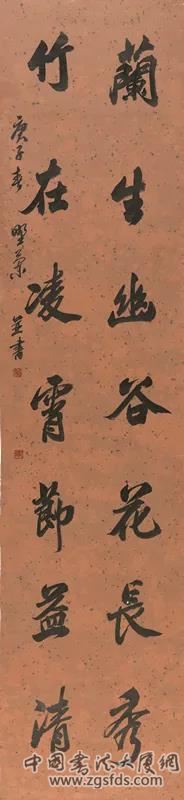 蘭生幽谷花長秀
竹在凌霄節益清
庚子春
並書
中国书法大厦网
www.zgsfds.com